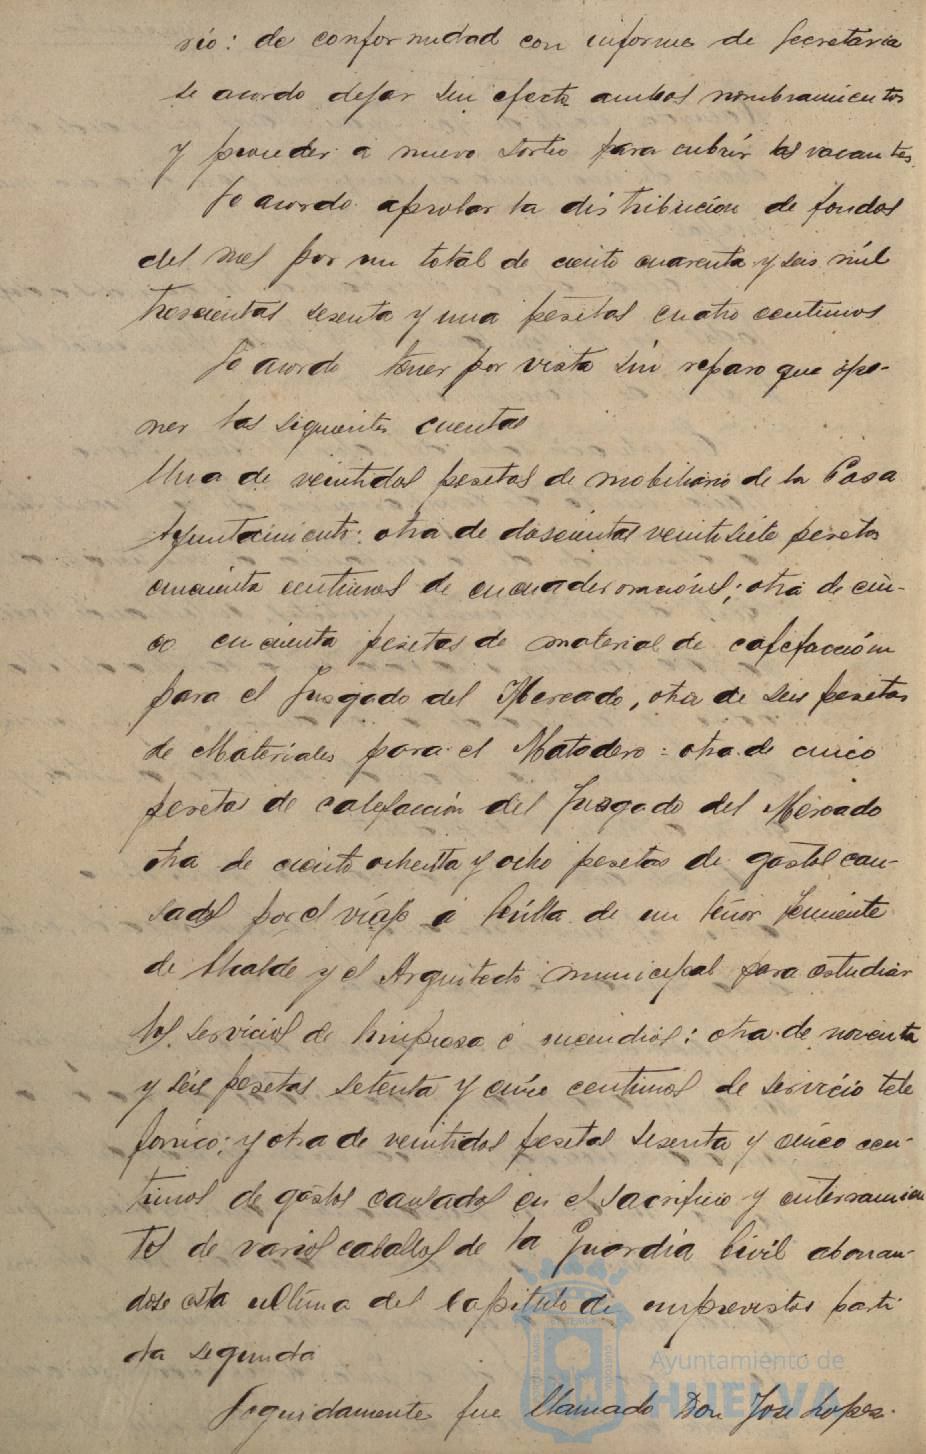 rio: de conformidad con informe de Secretaria
se acordo dejar sin efecto ambos nombramientos
y proceder a nuevo sorteo para cubrir las vacantes.
Se acordo aprobar la distribución de fondos
del mes por un total de ciento cuarenta y seis mil
trescientas sesenta y una pesetas cuatro centimos
Se acordo tener por vista sin reparo que opo-
ner las siguientes cuentas
Una de veintidos pesetas de mobiliario de la Casa
Ayuntamiento: otra de doscientas veintisiete pesetas
cincuenta centimos de encuadernaciónes; otra de cin-
co cincuenta pesetas de material de calefacción
para el Juzgado del Mercado, otra de seis pesetas
de Materiales para el Matadero: otra de cinco
pesetas de calefacción del Juzgado del Mercado
otra de ciento ochenta y ocho pesetas de gastos cau-
sados por el viaje a Sevilla de un señor Teniente
de Alcalde y el Arquitecto municipal para estudiar
los servicios de limpieza é incendios: otra de noventa
y seis pesetas setenta y cinco centimos de servicio tele
fonico; y otra de veintidos pesetas sesenta y cinco cen-
timos de gastos causados en el sacrificio y enterramien
tos de varios caballos de la Guardia Civil abonan-
dose esta ultima del Capitulo de imprevistos parti
da segunda
Seguidamente fue llamado Don Jose Lopez
Ayuntamiento de
HUELVA